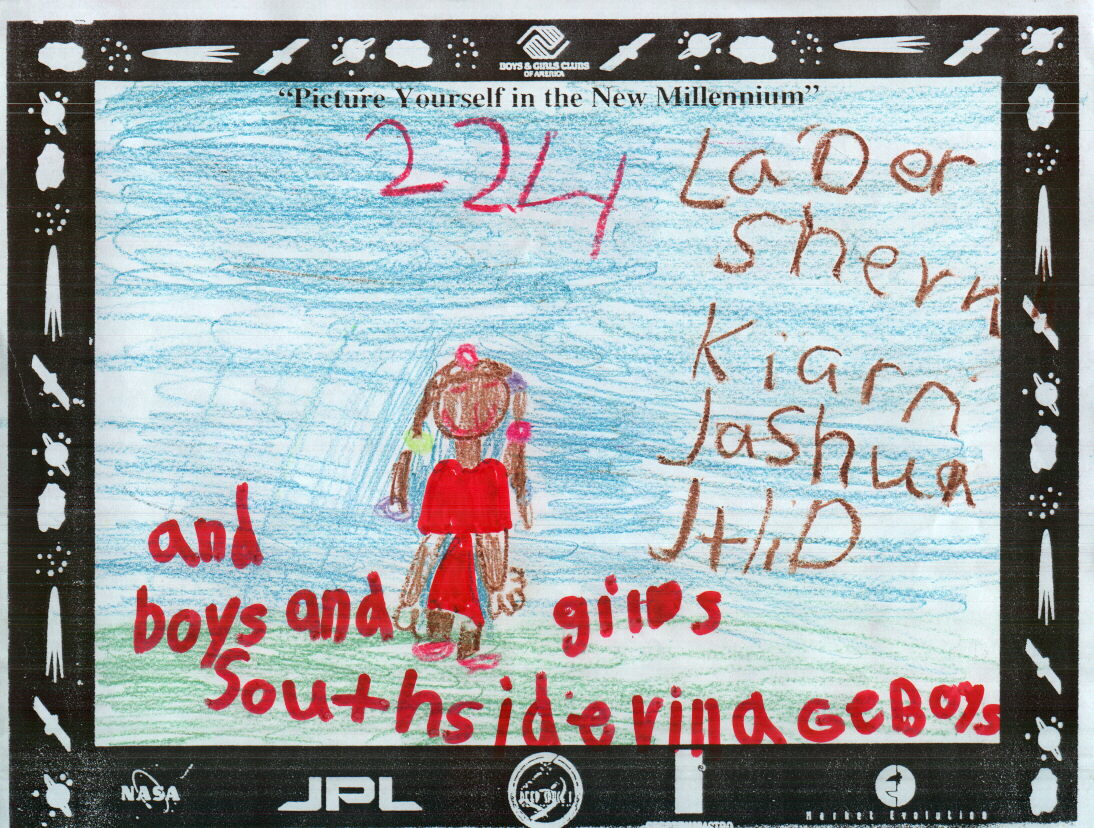 BOYS & GIRLS CLUBS
OF AMERICA
"Picture Yourself in the New Millennium"
224
La'Der
Sherri
Kiarn
Jashua
and
boys and girls
Southside vinageBoys
NASA
JPL
DEEP SPACE 1
Market Evolution